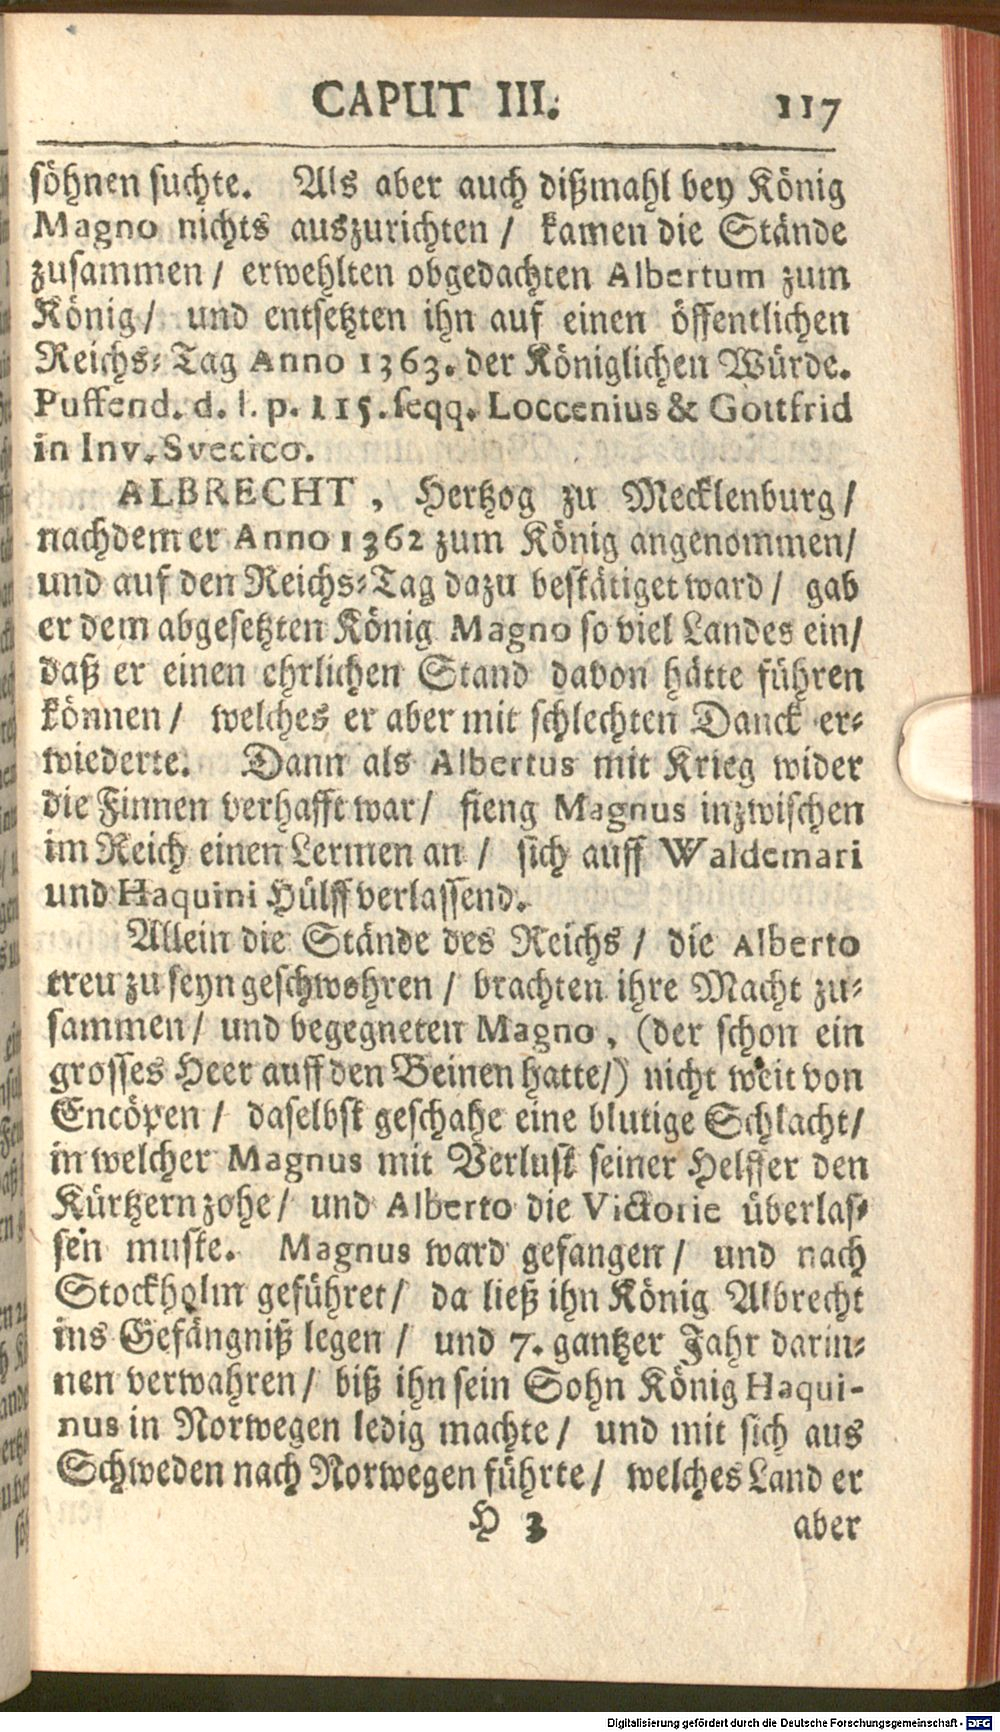 CAPUT III. 117
söhnen suchte. Als aber auch dißmahl bey König
Magno nichts auszurichten / kamen die Stände
zusammen / erwehlten obgedachten Albertum zum
König / und entsetzten ihn auf einen öffentlichen
Reichs-Tag Anno 1363. der Königlichen Würde.
Puffend. d. l. p. 115. seqq. Loccenius & Gottfrid
in Inv. Svecico.
ALBRECHT, Hertzog zu Mecklenburg /
nachdem er Anno 1362 zum König angenommen /
und auf den Reichs-Tag dazu bestätiget ward / gab
er dem abgesetzten König Magno so viel Landes ein /
daß er einen ehrlichen Stand davon hätte führen
können / welches er aber mit schlechten Danck er-
wiederte. Dann als Albertus mit Krieg wider
die Finnen verhafft war / fieng Magnus inzwischen
im Reich einen Lermen an / sich auff Waldemari
und Haquini Hülff verlassend.
Allein die Stände des Reichs / die Alberto
treu zu seyn geschwohren / brachten ihre Macht zu-
sammen / und begegneten Magno, (der schon ein
grosses Heer auff den Beinen hatte /) nicht weit von
Encöpen / daselbst geschahe eine blutige Schlacht /
in welcher Magnus mit Verlust seiner Helffer den
Kürtzern zohe / und Alberto die Victorie überlas-
sen muste. Magnus ward gefangen / und nach
Stockholm geführet / da ließ ihn König Albrecht
ins Gefängniß legen / und 7. gantzer Jahr darin-
nen verwahren / biß ihn sein Sohn König Haqui-
nus in Norwegen ledig machte / und mit sich aus
Schweden nach Norwegen führte / welches Land er
H 3 aber
Digitalisierung gefördert durch die Deutsche Forschungsgemeinschaft - DFG